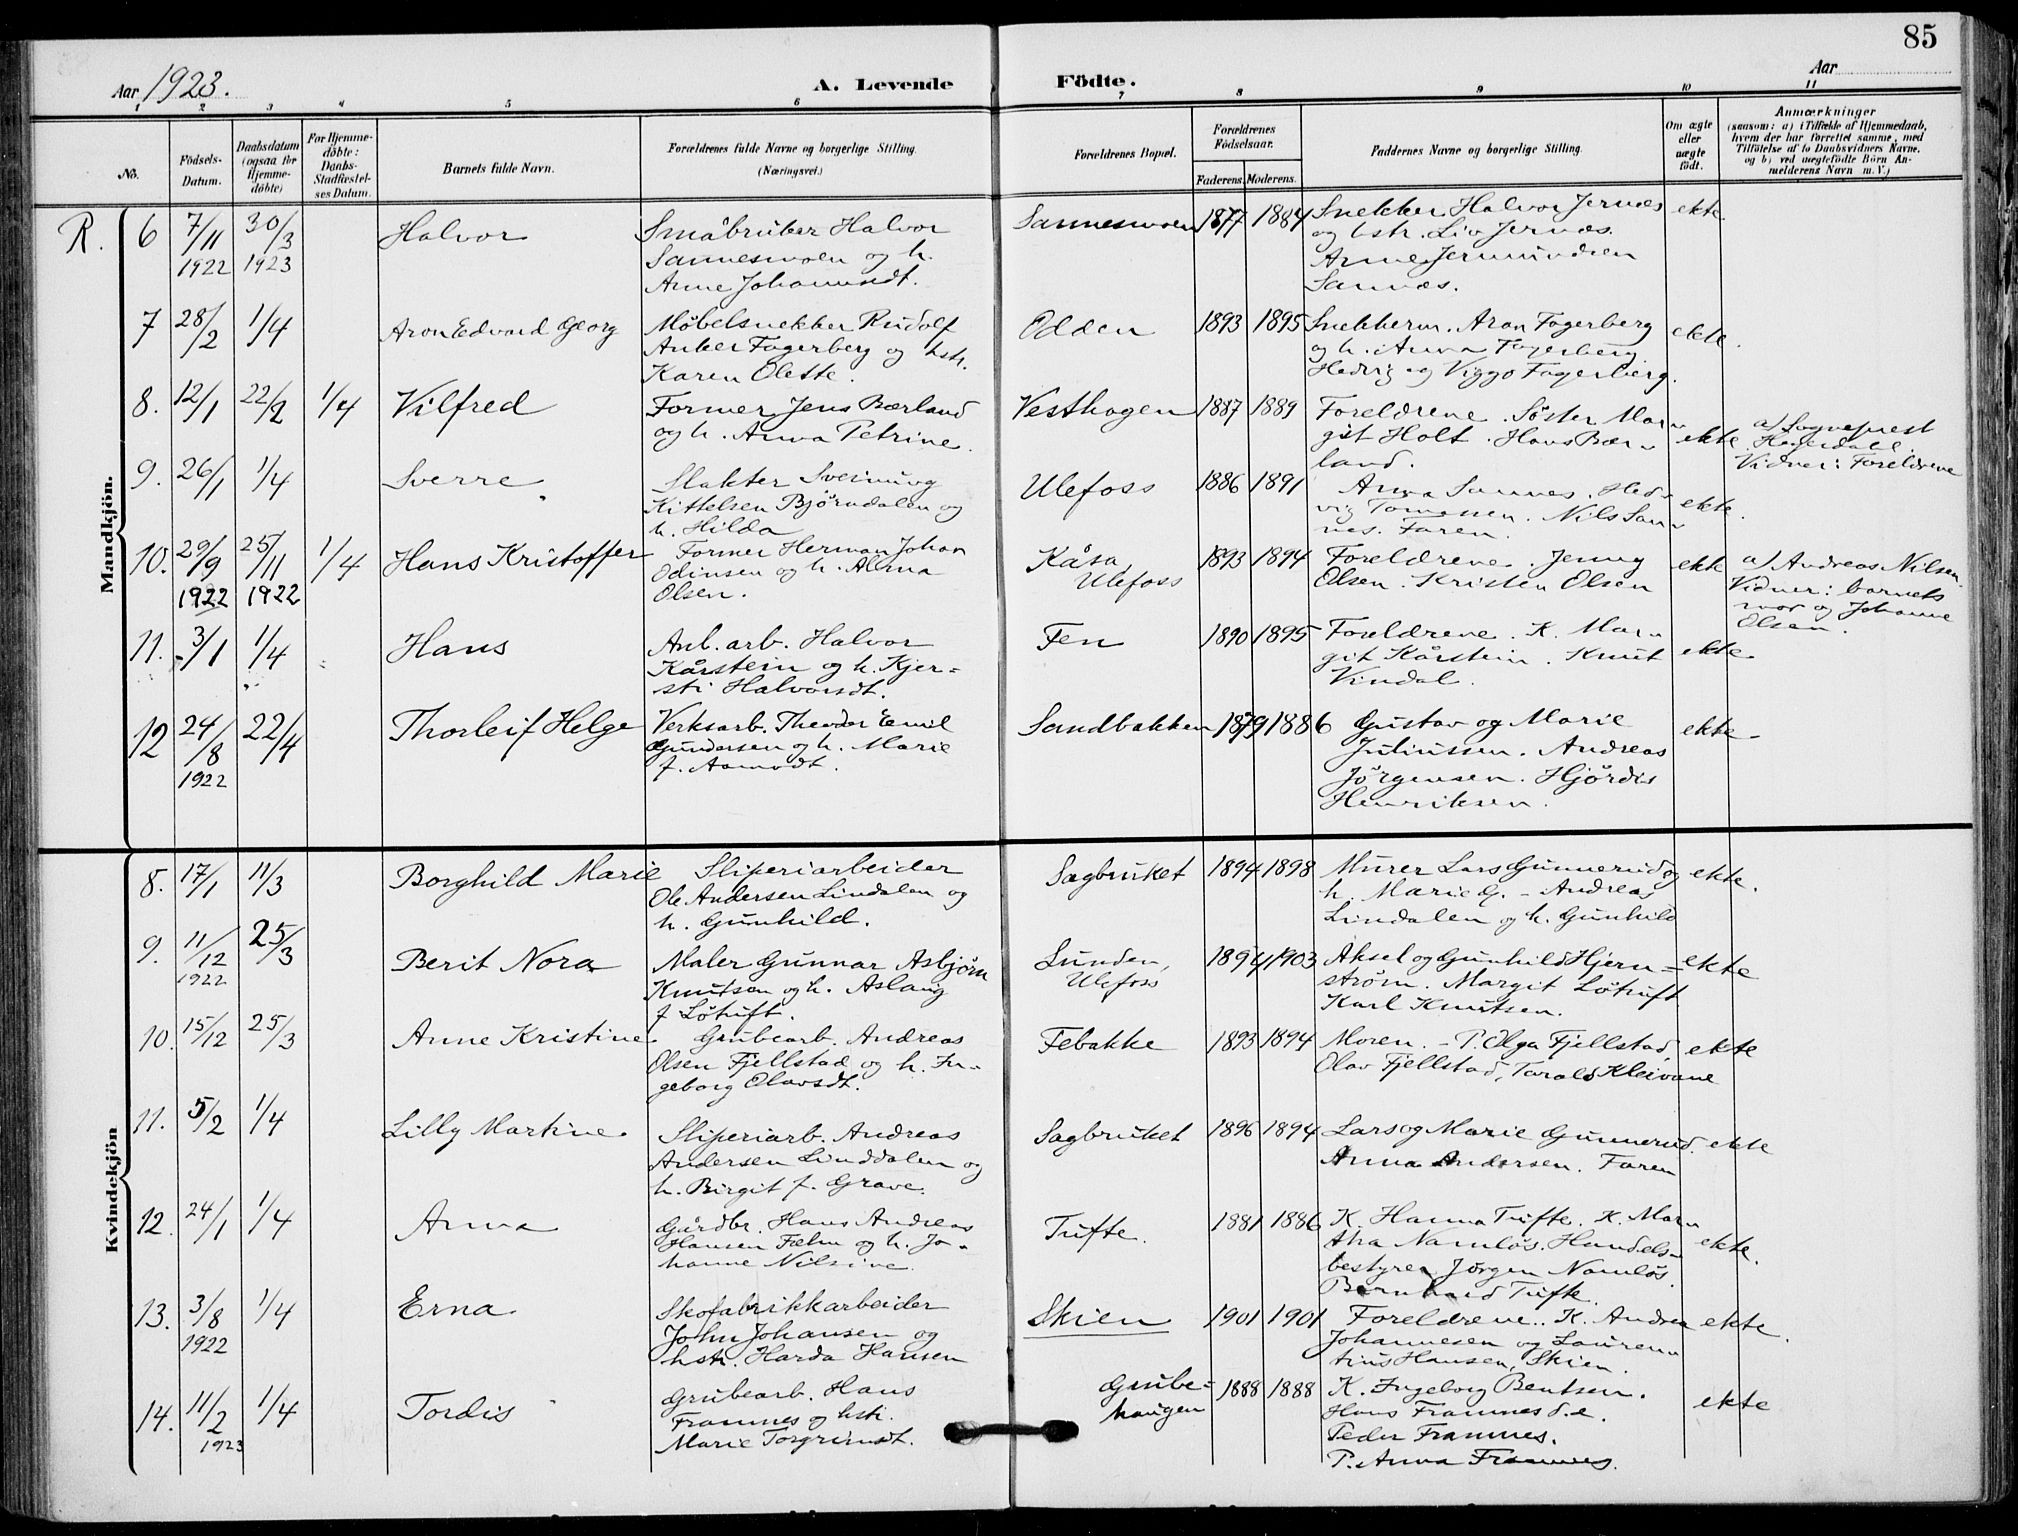 85
Aar 1923.
A. Levende Födte.
Aar
1 2 3 4 5 6 7 8 9 10 11
No.
Födsels-
Datum.
Daabsdatum
(ogsaa for
Hjemme-
döbte)
For Hjemme-
döbte:
Daabs-
Stadfæstel-
ses Datum.
Barnets fulde Navn.
Forældrenes fulde Navne og borgerlige Stilling
(Næringsvei.)
Forældrenes Bopæl.
Forældrenes
Födselsaar.
Faderens. Moderens.
Faddernes Navne og borgerlige Stilling
Om ægte
eller
uægte
födt.
Anmærkninger
(saasom: a) i Tilfælde af Hjemmedaab,
hvem der har forrettet samme, med
Tilföielse af to Daabsvidners Navne,
og b) ved uægtefödte Börn An-
melderens Navn m. V.)
Mandkjön.
R. 6 7/11 1922 30/3 1923 Halvor
Småbruker Halvor
Sannesmoen og h.
Anne Johannesdt.
Sannesmoen 1877 1884
Snekker Halvor Jernæs
og hstr. Liv Jernæs.
Anne Jermundsen
Sannæs.
ekte
7 28/2 1/4 Aron Edvard Georg
Møbelsnekker Rudolf
Anker Fagerberg og hstr.
Karen Olette.
Odden 1893 1895
Snekkerm. Aron Fagerberg
og h. Anna Fagerberg
Hedvig og Viggo Fagerberg.
ekte.
8. 12/1 22/2 1/4 Vilfred
Former Jens Bærland
og h. Anna Petrine.
Vesthagen 1887 1889
Foreldrene. Søster Mar-
git Holt. Hans Bær-
land.
ekte
a) Sogneprest
Vidner: Foreldrene
9. 26/1 1/4 Sverre
Slakter Sveinung
Kittelsen Bjørndalen og
h. Hilda
Ulefoss 1886 1891
Anna Sannes. Hed-
vig Tomessen. Nils San-
nes. Faren.
ekte.
10. 29/9 1922 25/11 1922 1/4 Hans Kristoffer
Former Herman Johan
Odinsen og h. Alma
Olsen.
Kåsa
Ulefoss
1893 1894
Foreldrene. Jenny
Olsen. Kristen Olsen
ekte
a) Andreas Nilsen.
Vidner: barnets
mor og Johanne
Olsen.
11. 3/1 1/4 Hans
Anl. arb. Halvor
Kårstein og h. Kjer-
sti Halvorsdt.
Fen 1890 1895
Foreldrene. K. Mar-
git Kårstein. Knut
Vindal.
ekte
12 24/8 1922 22/4 Thorleif Helge
Verksarb. Theodor Emil
Gundersen og h. Marie
f. Aamodt.
Sandbakken 1879 1886
Gustav og Marie
Juliussen. Andreas
Jörgensen. Hjördis
Henriksen.
ekte
Kvindekjön
8. 17/1 11/3 Borghild Marie
Sliperiarbeider
Ole Andersen Lindalen og
h. Gunhild.
Sagbruket 1894 1898
Murer Lars Gunnerud og
h. Marie G. - Andreas
Lindalen og h. Gunhild
ekte.
9. 11/12 1922 25/3 Berit Nora
Maler Gunnar Asbjørn
Knutsen og h. Aslaug
f Løtuft.
Lunden,
Ulefoss
1894 1903
Aksel og Gunhild Hjern-
strøm. Margit Løtuft
Karl Knutsen.
ekte
10. 15/12 25/3 Anne Kristine
Grubearb. Andreas
Olsen Fjellstad og h. In-
geborg Olavsdt.
Febakke 1893 1894
Moren. - P. Olga Fjellstad,
Olav Fjellstad, Tarald Kleivane
ekte
11. 5/2 1/4 Lilly Martine
Sliperiarb. Andreas
Andersen Linddalen og
h. Birgit f. Grave.
Sagbruket 1896 1894
Lars og Marie Gunnerud.
Anna Andersen. Faren
ekte
12. 24/1 1/4 Anna
Gårdbr. Hans Andreas
Hansen Fæhn og h. Jo-
hanne Nilsine.
Tufte. 1881 1886
K. Hanna Tufte. K. Mar-
tha Namløs. Handels-
bestyrer Jørgen Namløs.
Bernhard Tufte.
ekte.
13. 3/8 1922 1/4 Erna
Skofabrikkarbeider
John Johansen og
hstr. Harda Hansen
Skien 1901 1901
Foreldrene.. K. Andrea
Johannesen og Lauren-
tius Hansen, Skien.
ekte.
14. 11/2 1923 1/4 Tordis
Grubearb. Hans
Framnes og hstr.
Marie Torgrimsdt.
Grube-
haugen
1888 1888
K. Ingeborg Bentsen.
Hans Framnes d.e.
Peder Framnes.
P. Anna Framnes.
ekte